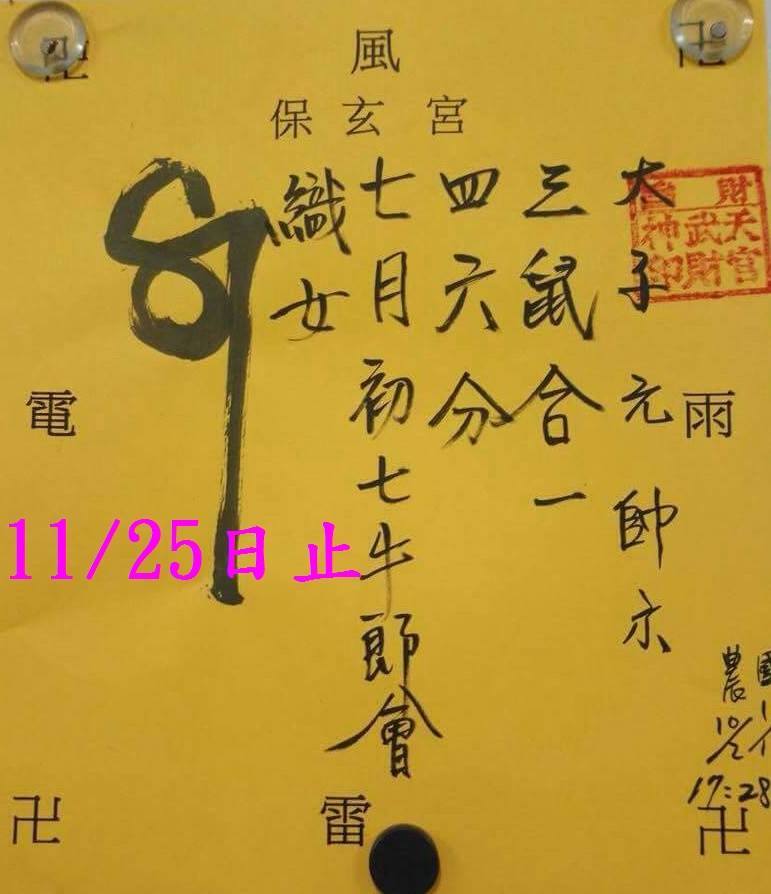 卍
風
卍
保玄宮
財天官
武財
神印
太子元帥示
三鼠合一
四六分
七月初七牛郎會
織女
電
雨
11/25日止
農
國
17:28
卍
雷
卍